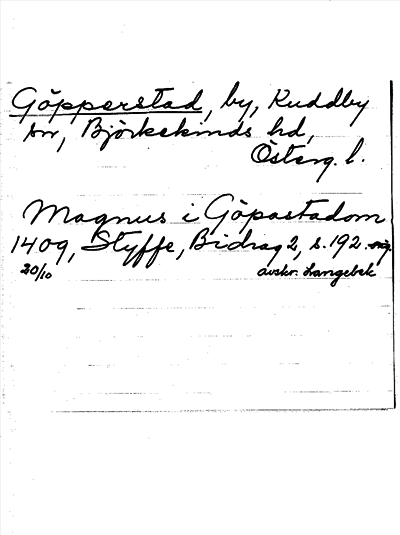 Göpperstad, by, Kuddby
sn, Björkekinds hd,
Österg. l.
Magnus i Göpastadom
1409, Styffe, Bidrag 2, s. 192. orig.
20/10
avskr. Langebek